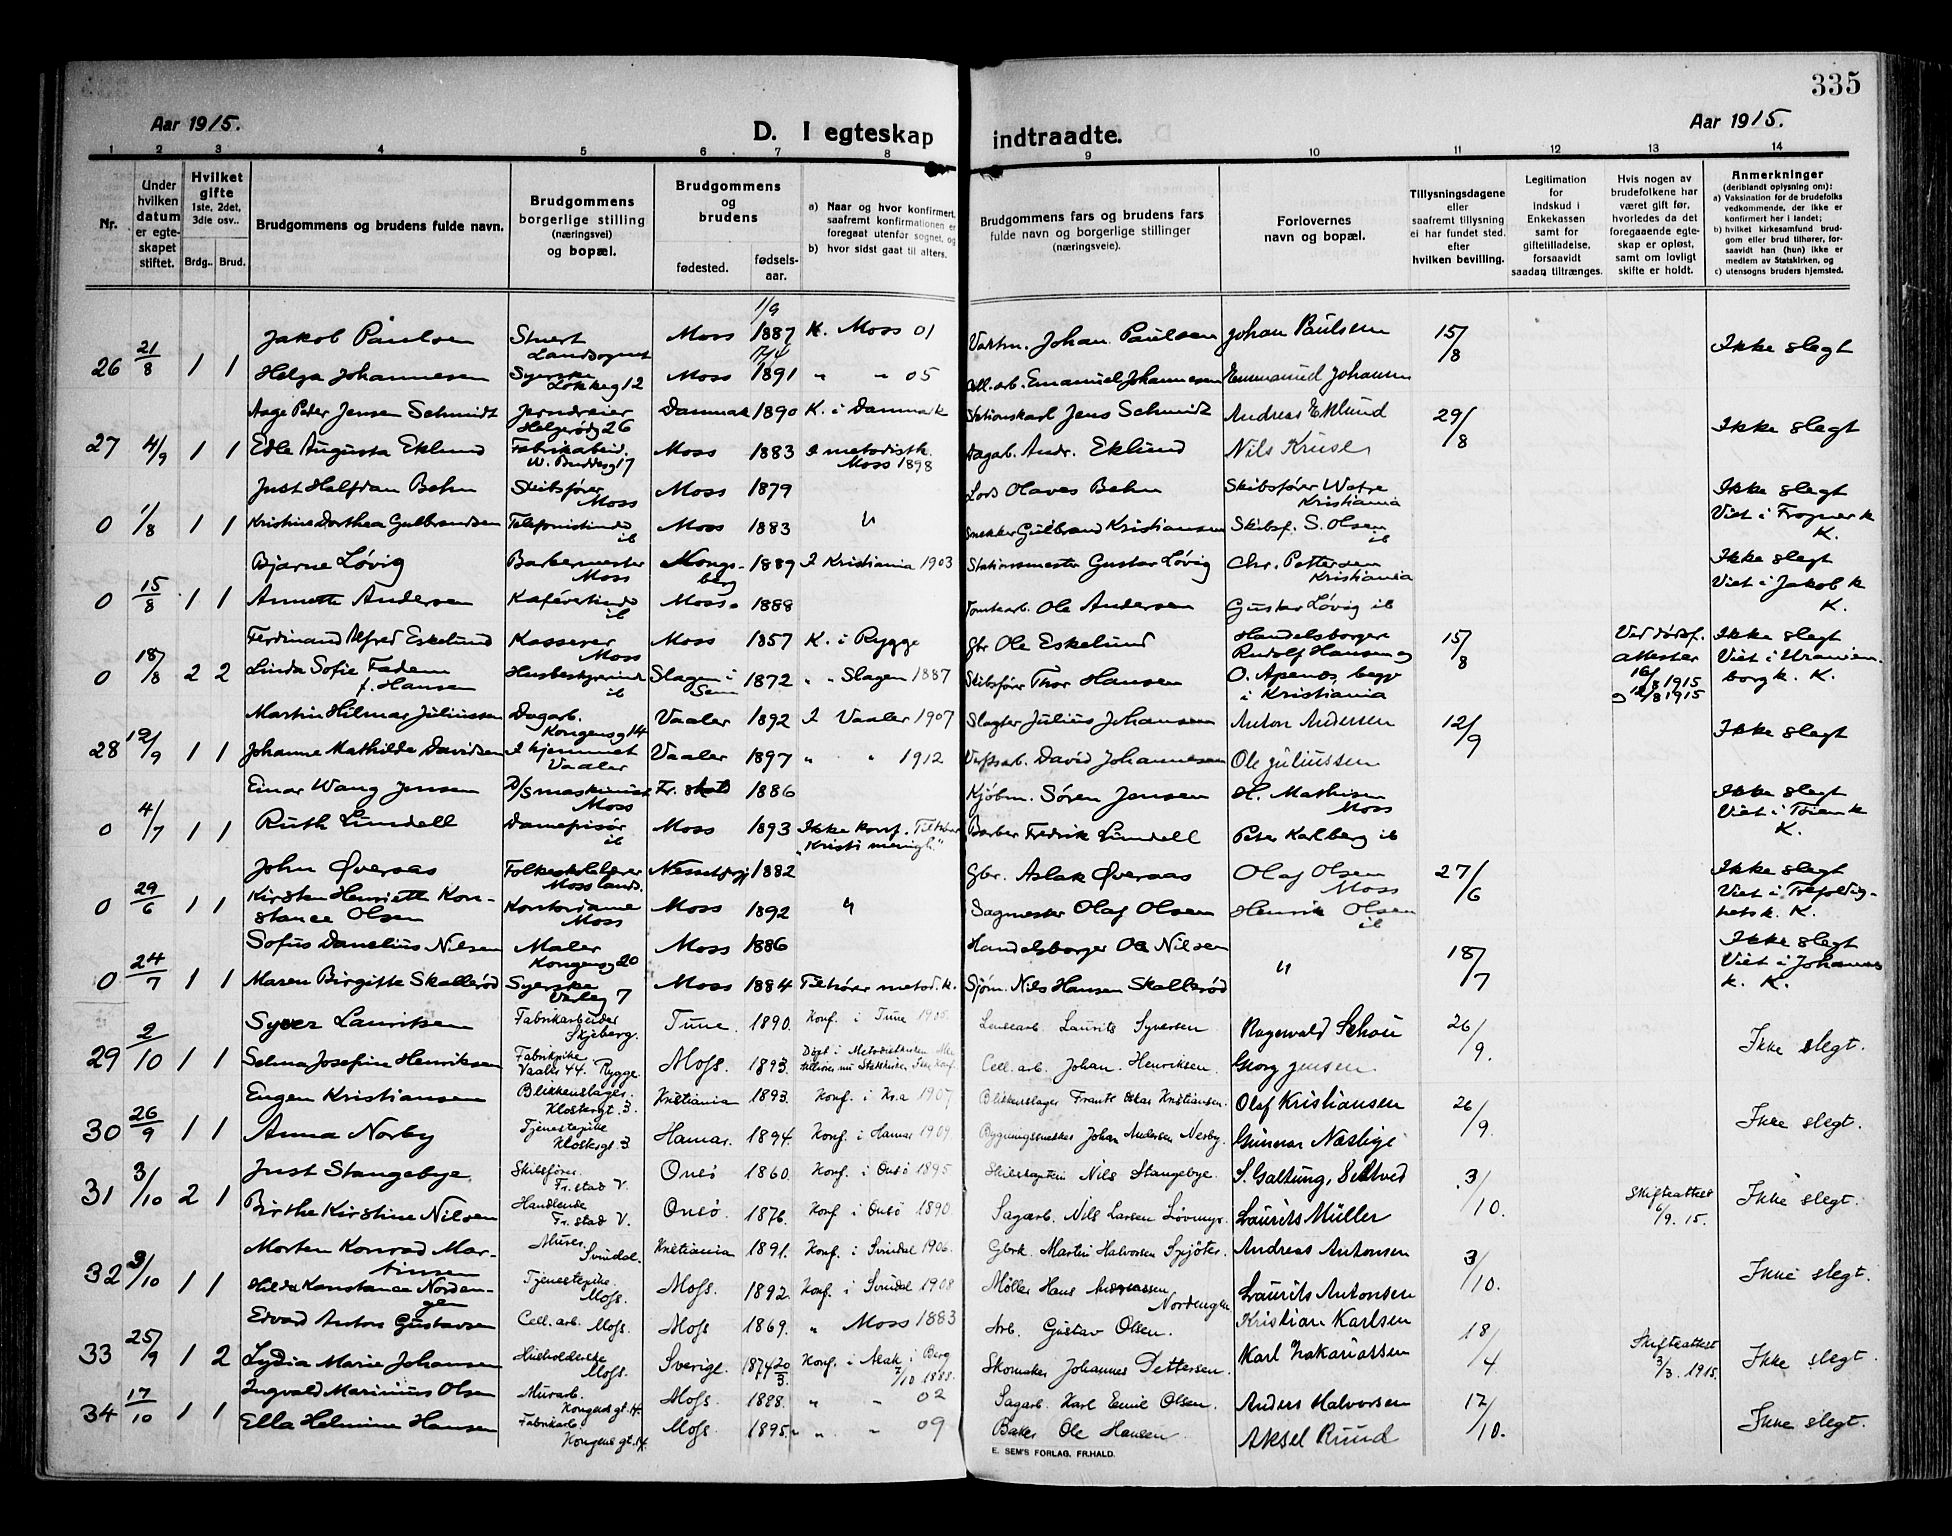 335
Aar 1915.
D. I egteskap indtraadte.
Aar 1915.
1 2 3 4 5 6 7 8 9 10 11 12 13 14
Nr.
Under hvilken datum er egteskapet stiftet.
Hvilket gifte 1ste, 2det, 3die osv..
Brdg.. Brud.
Brudgommens og brudens fulde navn.
Brudgommens borgerlige stilling (næringsvei) og bopæl.
Brudgommens og brudens
fødested. fødselsaar.
a) Naar og hvor konfirmert, saafremt konfirmationen er foregaat utenfor sognet, og
b) hvor sidst gaat til alters.
Brudgommens fars og brudens fars fulde navn og borgerlige stillinger (næringsveie).
Forlovernes navn og bopæl.
Tillysningsdagene eller saafremt tillysning ei har fundet sted, efter hvilken bevilling.
Legitimation for indskud i Enkekassen samt for giftetilladelse, forsaavidt saadan tiltrænges.
Hvis nogen av brudefolkene har været gift før, hvorledes da det foregaaende egteskap er opløst, samt om lovligt skifte er holdt.
Anmerkninger (deriblandt oplysning om):
a) Vaksination for de brudefolks vedkommende, der ikke er konfirmert her i landet;
b) hvilket kirkesamfund brudgom eller brud tilhører, forsaavidt han (hun) ikke er medlem av Statskirken, og
c) utensogns bruders hjemsted.
26 21/8 1 1 Jakob Paulsen Stuert Landsognet Moss 1/9 1887 K. Moss 01 Johan Paulsen Johan Paulsen 15/8 Ikke slegt
Helga Johannesen Syerske Løkkeg 12 Moss 17/4 1891 " " 05 Emanuel Johannesen Emmanuel Johansen
27 4/9 1 1 Aage Peter Jensen Schmidt Jerndreier Helgerødg 26 Danmark 1890 K. i Danmark Stationskarl Jens Schmidt Andreas Eklund 29/8 Ikke slegt
Edle Augusta Eklund Fabrikarbeid. W. Buddesg 17 Moss 1883 I metodistk. Moss 1898 Dagarb. Andr. Eklund Nils Kruse
0 1/8 1 1 Just Halfdan Behn Skibsfører Moss Moss 1879 Lods Olaves Behn Skibsfører Kristiania Ikke slegt Viet i Frogner k K.
Kristine Dorthea Gulbrandsen Telefonistinde ib Moss 1883 " Snekker Gulbrand Kristiansen Skibsf. S. Olsen ib
0 15/8 1 1 Bjarne Løvig Barbermester Moss Kongsberg 1889 I Kristiania 1903 Stationsmester Gustav Løvig Chr. Pettersen Kristiania Ikke slegt Viet i Jakob k K.
Annette Andersen Kaféværtinde ib Moss. 1888 Tomtearb. Ole Andersen Gustav Løvig ib
0 18/8 2 2 Ferdinand Alfred Eskelund Kasserer Moss Moss 1857 K. i Rygge Gbr Ole Eskelund Handelsborger Rudolf Hansen og 15/8 Ved dødsf. attester 16/8 1915 o 12/8 1915 Ikke slegt Viet i Uranienborg k. K.
Linda Sofie Fadum f. Hansen Husbestyrerinde ib Slagen i Sem 1872 " " Slagen 1887 Skibsfører Thor Hansen O. Apenes, begge i Kristiania
28 12/9 1 1 Martin Hilmar Juliussen Dagarb. Kongensg 14 Vaaler 1892 I Vaaler 1907 Slagter Julius Johansen Anton Andersen 12/9 Ikke slegt
Johanne Mathilde Davidsen I hjemmet Vaaler Vaaler 1897 " " 1912 Verftsarb. David Johannesen Ole Juliussen
0 4/7 1 1 Einar Wang Jensen D/S maskinist Moss Fr. stad 1886 Kjøbm. Søren Jensen H. Mathisen Moss Ikke slegt Viet i Tøien k K.
Ruth Lundell Damefrisør ib Moss 1893 Ikke konf. Tilhører "Kristi menigh." Barber Fredrik Lundell Peter Karlberg ib
0 29/6 1 1 John Øveraas Folkeskolelærer Moss lands. 1882 Gbr. Aslak Øveraas Olaf Olsen Moss 27/6 Ikke slegt Viet i Trefoldighetsk. K.
Kirsten Henriette Konstance Olsen Kontordame Moss Moss 1892 " Sagmester Olaf Olsen Henrik Olsen ib
0 24/7 1 1 Sofus Danelius Nilsen Maler Kongensg 20 Moss 1886 Handelsborger O Nilsen 18/7 Ikke slegt Viet i Johannes k. K.
Maren Birgitte Skallerød Syerske Varleg 7 Moss 1884 Tilhører metod. k. Sjøm. Nils Hansen Skallerød "
29 2/10 1 1 Syver Lauritsen Fabrikarbeider Skjeberg. Tune. 1890. Konf. i Tune 1905. Lensearb. Laurits Syversen Ragnvald Schou 26/9. Ikke slegt.
Selma Josefine Henriksen Fabrikpike Vaaler 44. Rygge Moss. 1893. Døpt i Metodistkirken Cell. arb. Johan Henriksen. Georg Jensen
30 26/9 1 1 Eugen Kristiansen Blikkenslager. Klostergt. 3. Kristiania 1893. Konf. i Kr.a 1907 Blikkenslager Frantz Oskar Kristiansen. Olaf Kristiansen 26/9. Ikke slegt.
Anna Norby Tjenestepike Klostergt. 3 Hamar. 1894. Konf. i Hamar 1909. Bygningssnekker Johan Andersen Norby. Gunnar Næslige
31 3/10 2 1 Just Stangebye Skibsfører. Fr. stad V. Onsø 1860. Konf. i Onsø 1895 Skibskaptein Nils Stangebye S. Galtung, Sletved 3/10. Skifteattest 6/9. 15. Ikke slegt.
Birthe Kirstine Nilsen Handlende Fr. stad V. Onsø 1876. Konf i Onsø 1890 Sagarb. Nils Larsen Løvmyr. Laurits Müller
32 3/10 1 1 Morten Konrad Martinsen Murer Svindal. Kristiania 1891. Konf. i Svindal 1906. Gbrk. Martin Halvorsen Spjøter. Andreas Antonsen 3/10. Ikke slegt.
Hilda Konstanse Nordengen Tjenestepike. Moss. Moss. 1892. Konf. i Svindal 1908 Møller Hans Andreassen Nordengen Laurits Antonsen
33 25/9 1 2 Edvard Anton Gustavsen Cell. arb. Moss. Moss 1869. " Moss 1883 Arb. Gustav Olsen. Kristian Karlsen 18/4 Skifteattest 3/3. 1915. Ikke slegt.
Lydia Marie Johansen Husholderske Moss. Sverige 1874 20/3. Konf. i Asak i Berg 7/10 1888. Skomaker Johannes Pettersen. Karl Zakariassen
34 17/10 1 1 Ingvald Marinius Olsen Murarb. Kongensgt. 14. Moss. 1888. " " 02 Sagarb. Karl Emil Olsen. Anders Halvorsen 17/10. Ikke slegt.
Ella Helmine Hansen Fabrikarb. Kongensgt. 14. Moss. 1895. " " 09 Baker Ole Hansen. Aksel Ruud
E. SEM'S FORLAG, FR.HALD.